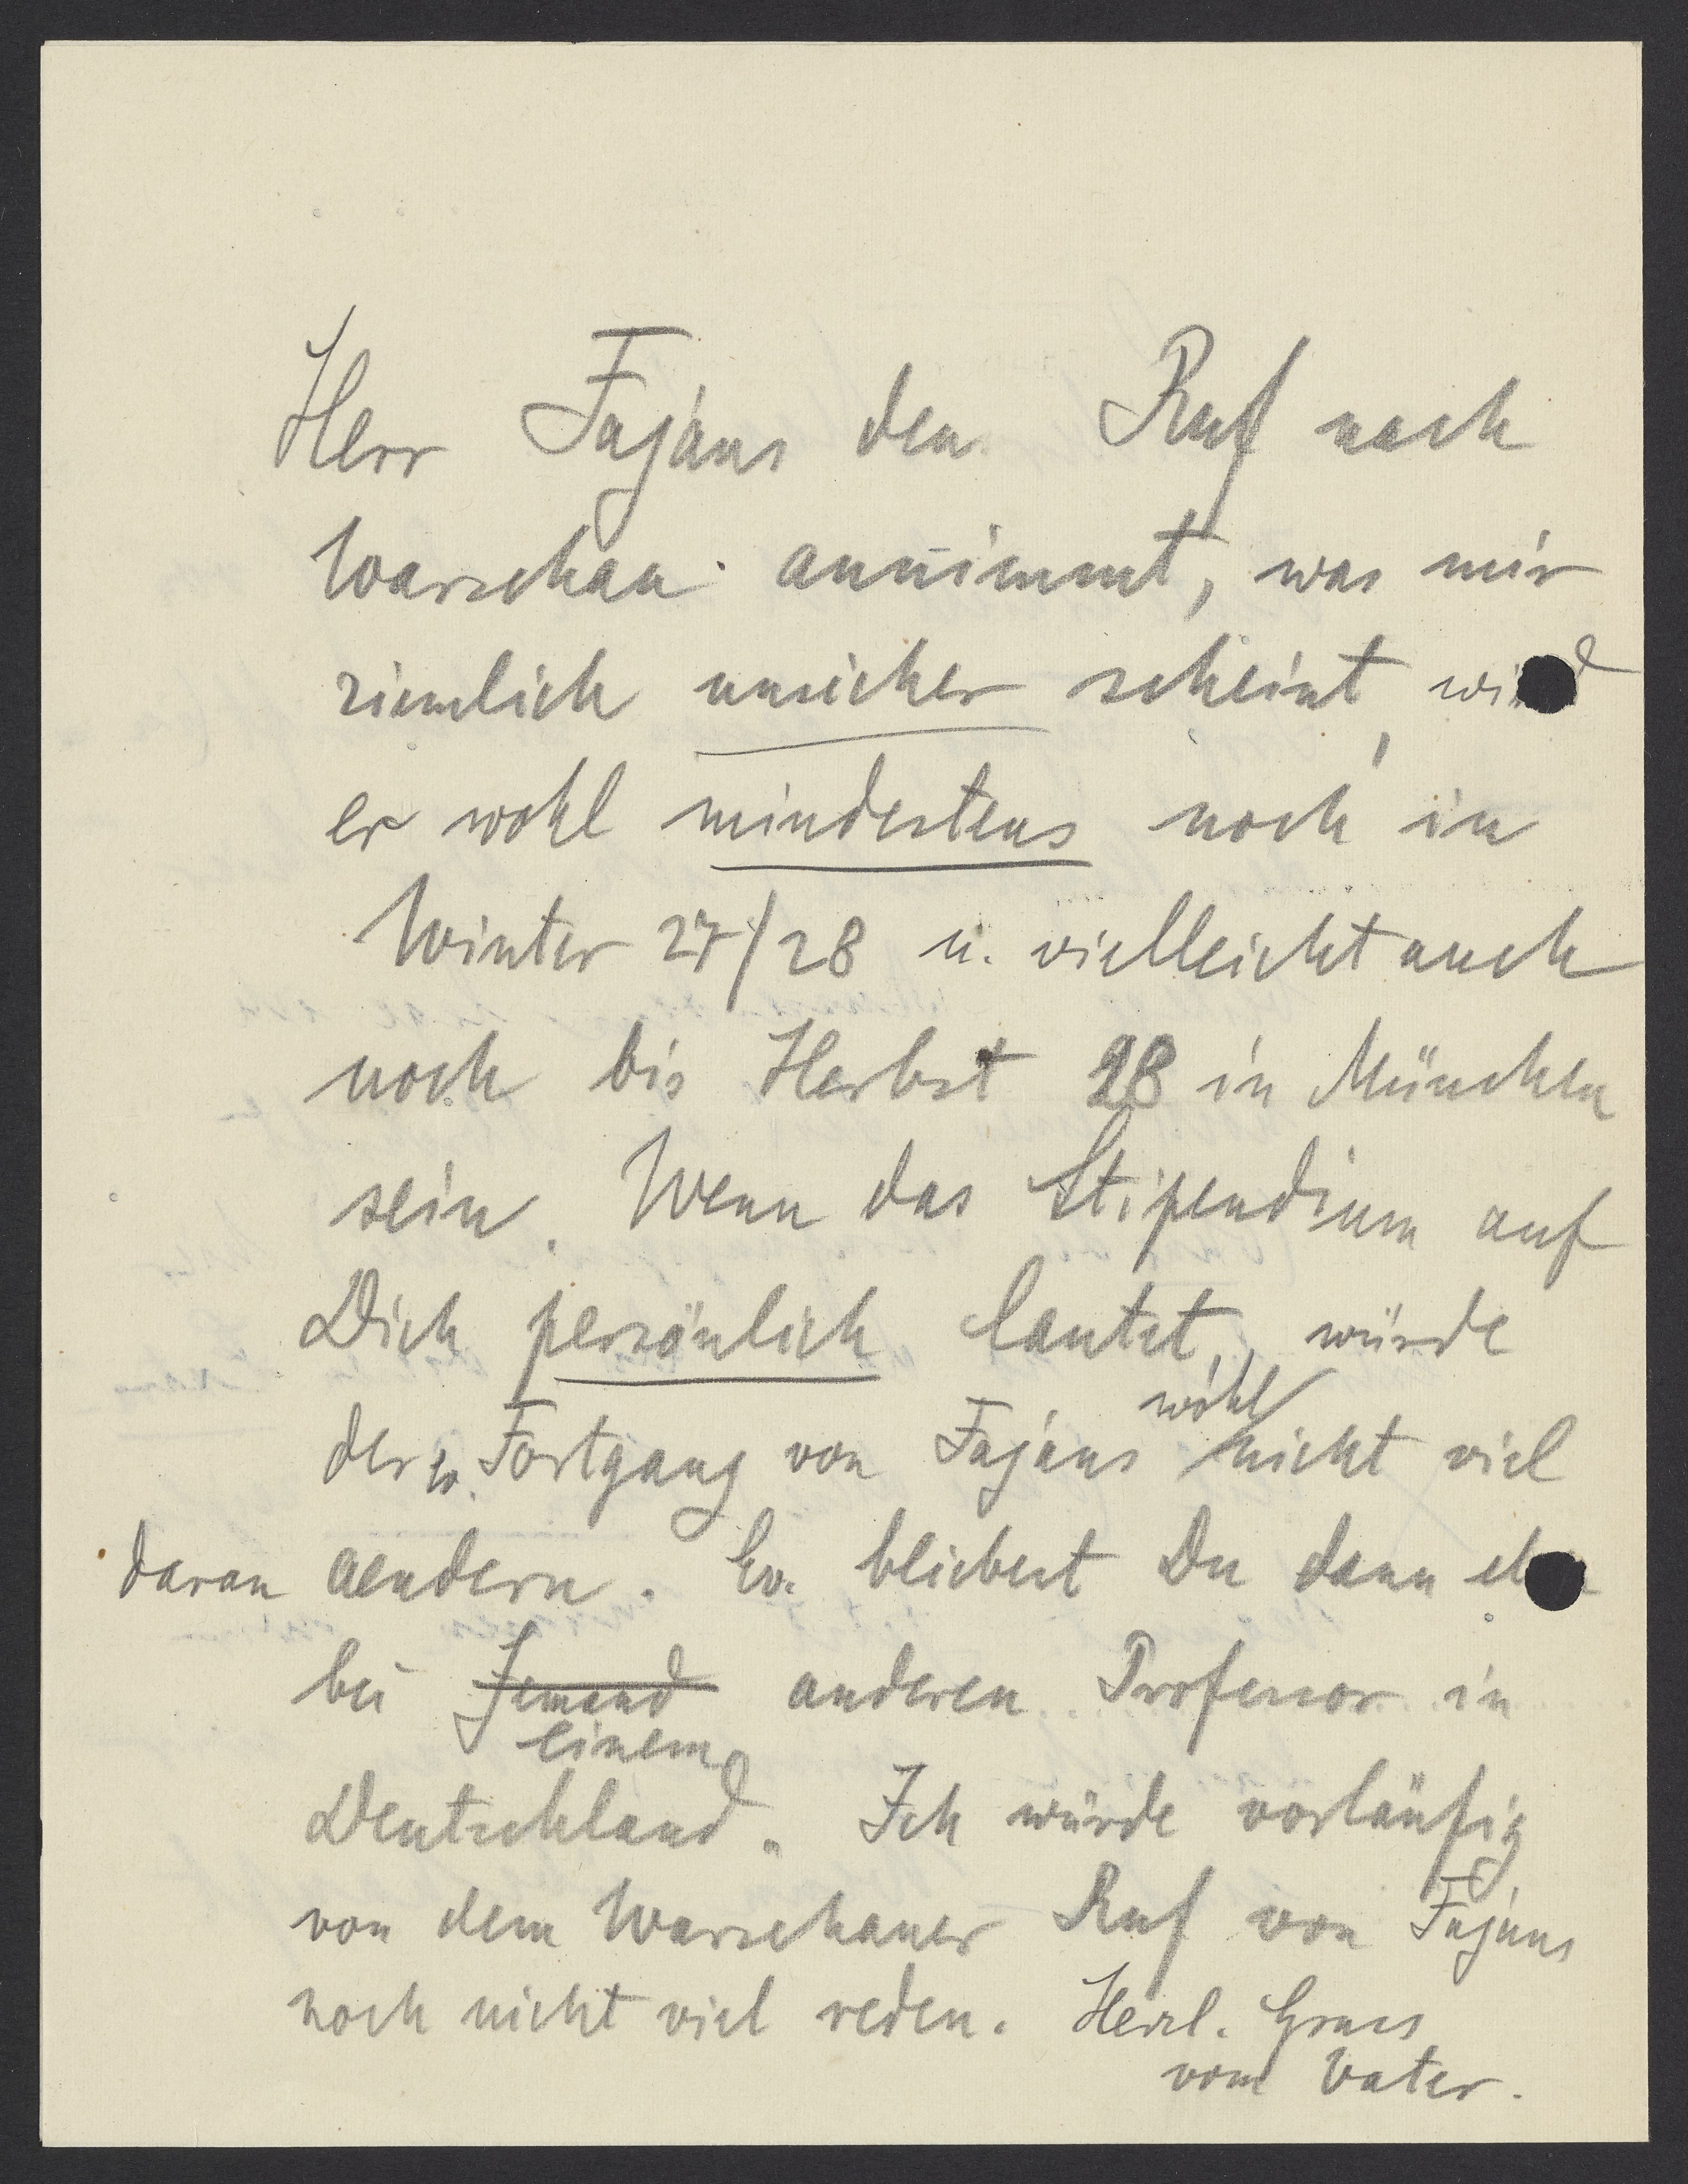 Herr Fajans den Ruf nach
Warschau annimmt, was mir
ziemlich unsicher scheint, wird
er wohl mindestens noch in
Winter 27/28 u. vielleicht auch
noch bis Herbst 28 in München
sein. Wenn das Stipendium auf
Dich persönlich lautet, würde
der ev. Fortgang von Fajans wohl nicht viel
daran aendern. Ev. bliebest Du dann
bei Jemand einem anderen Professor in
Deutschland. Ich würde vorläufig
von dem Warschauer Ruf von Fajans
noch nicht viel reden. Herzl. Gruss
vom Vater.